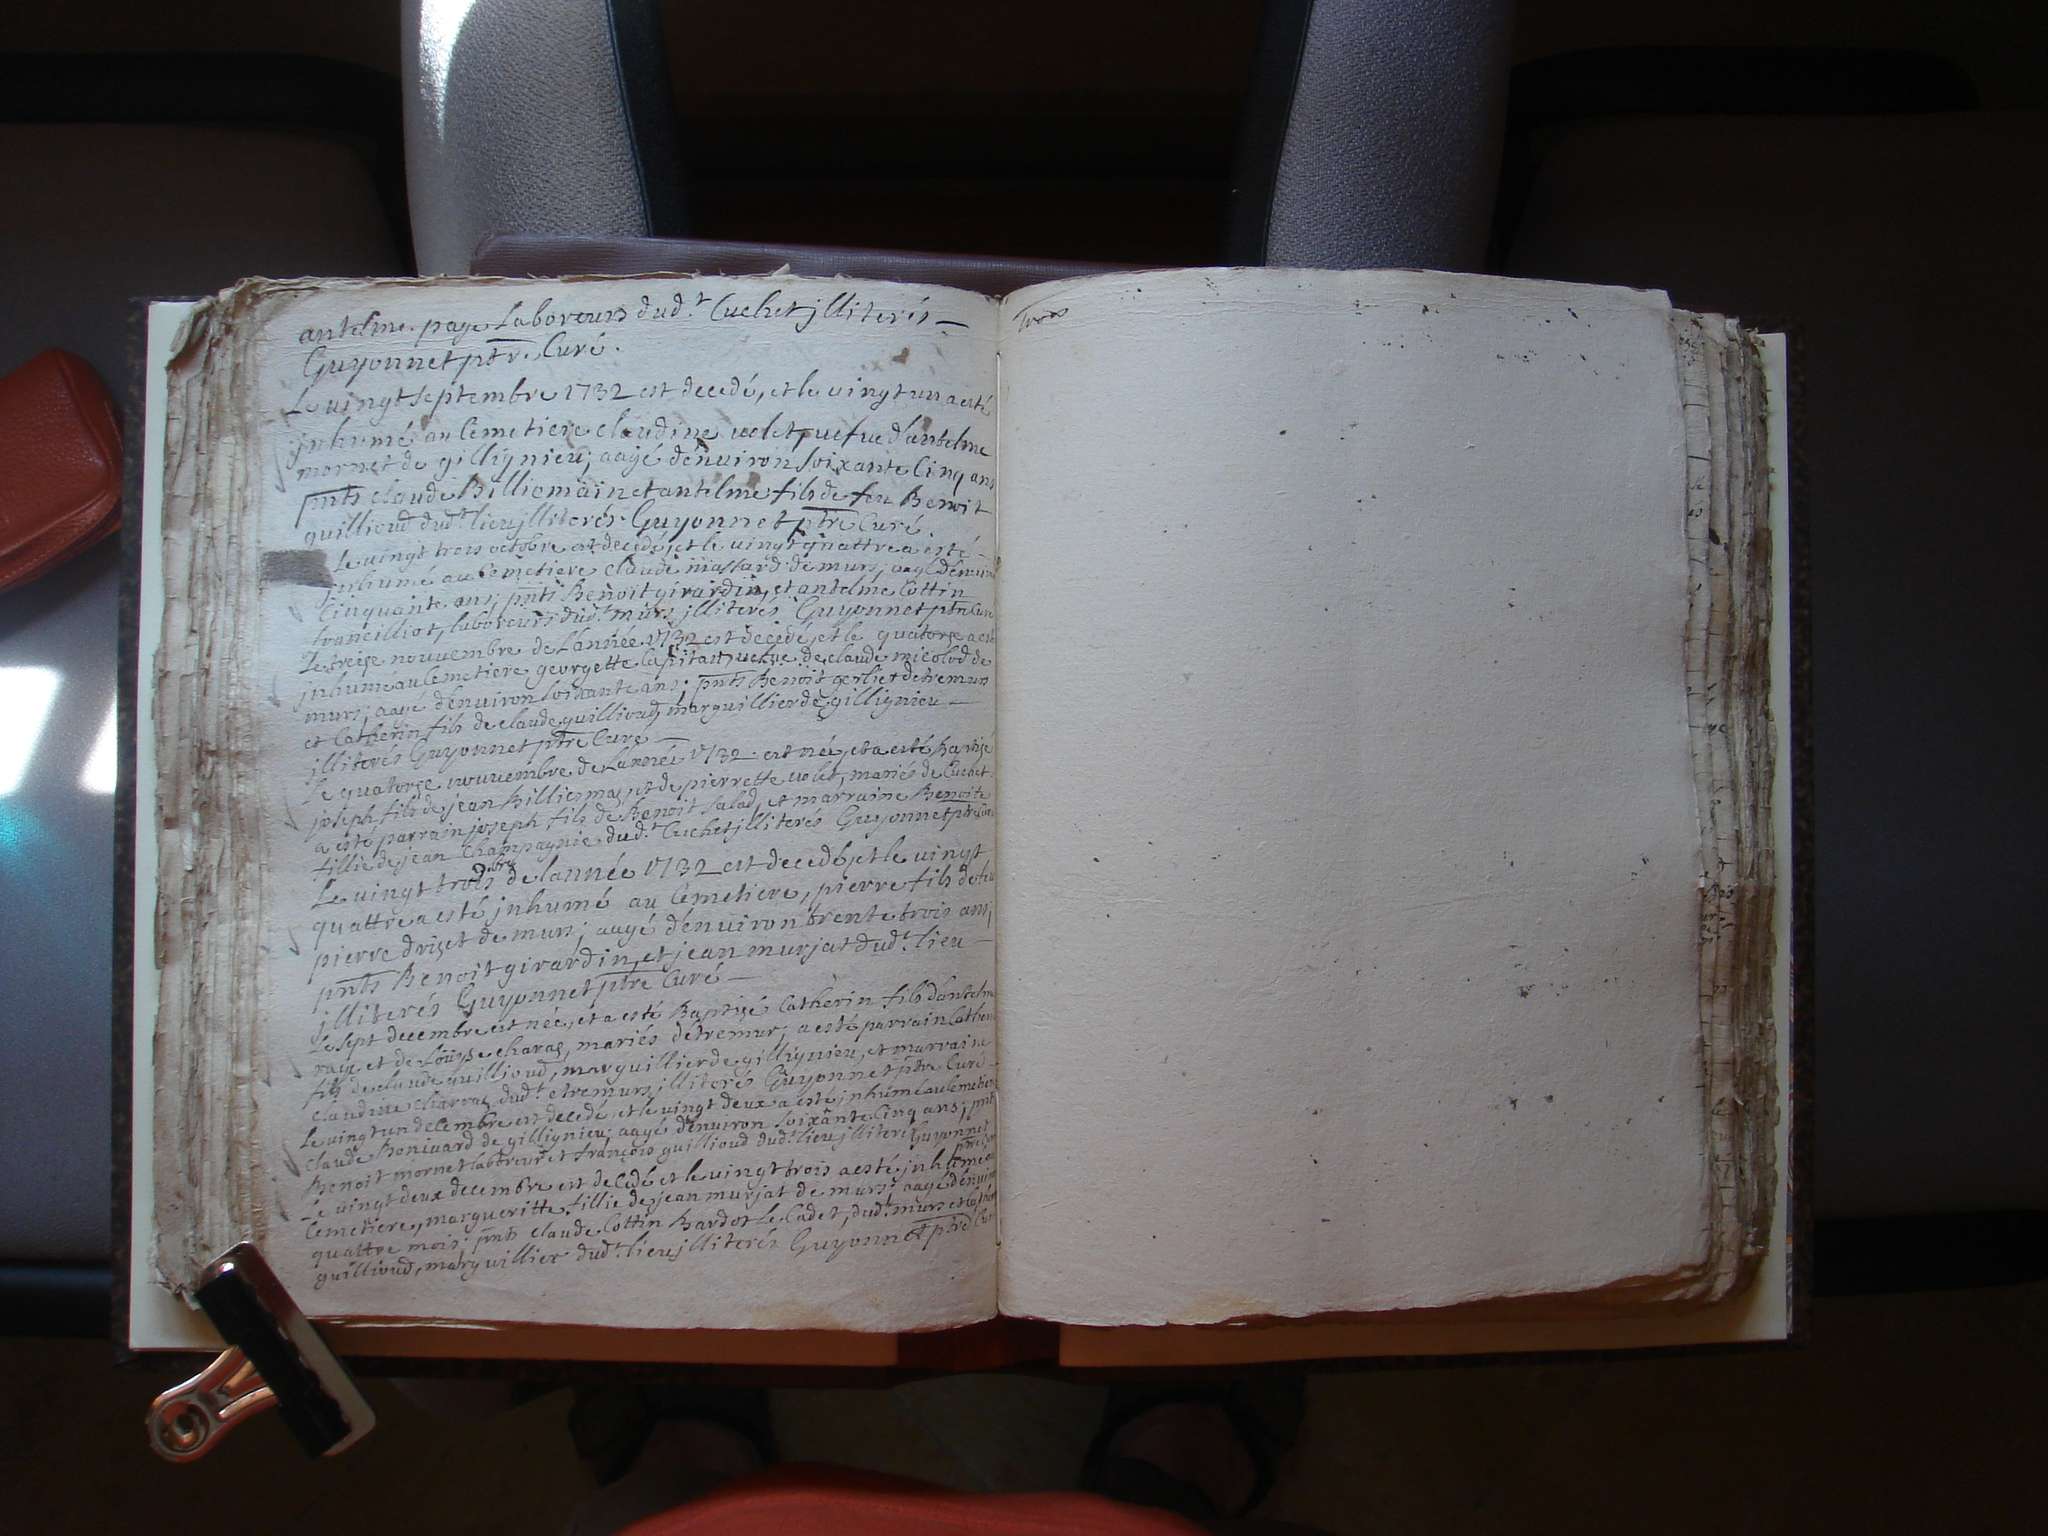 antelme page Laboreurs dud.t Cuchet jlliterés
Guyonnet ptre. Curé.
Le vingt septembre 1732 est decedé, et le vingt un a esté
jnhumé au Cemetiere claudine volet, vefve d'antelme
mornet de gillignieu; aagé d'enuiron soixante Cinq ans
pnts claude Billiemain et antelme fils de feu Benoit
guillioud dud.t lieu jlliterés Guyonnet ptre Curé
Le vingt trois octobre est decedé, et le vingt quattre a esté
jnhumé au Cemetiere claude mastard de murs, aagé d'enuiron
Cinquante ans; pnts Benoit girardin, et antelme Cottin
francilliot, laboreurs dud.t murs jlliterés Guyonnet ptre Curé
Le treize nouuembre de Lannée 1732 est decedé, et le quatorze a esté
jnhumé au Cemetiere georgette Capitan, vefve de claude micolod de
murs; aagé d'enuiron soixante ans; pnts Benoit gerliet detremurs
et Catherin fils de claude guillioud marguillier de gillignieu
jlliterés Guyonnet ptre Curé
Le quatorze nouuembre de Lannée 1732 est née, et a esté Baptizé
joseph fils de jean Billiemaz, et de pierrette volet, mariés de Cuchet
a esté parrain joseph, fils de Benoit Salad, et marraine Benoite
fillie de jean Champagnie dud.t Cuchet jlliterés Guyonnet ptre Curé
9bre
Le vingt trois de lannée 1732 est decedé, et le vingt
quattre a esté jnhumé au Cemetiere, pierre fils de feu
pierre drizet de murs; aagé d'enuiron trente trois ans;
pnts Benoit girardin, et jean murjat dud.t lieu
jlliterés Guyonnet ptre Curé
Le sept decembre est née, et a esté Baptizé Catherin fils d'antelme
et de Louyse charaz, mariés detremur; a esté parrain Catherin
fils de claude guillioud, marguillier de gillignieu, et marraine
claudine charraz dud.t etremurs jlliterés Guyonnet ptre Curé
Le vingt un decembre est decedé, et le vingt deux a esté jnhumé au Cemetiere
claude Boniuard de gillignieu; aagé d'enuiron soixante Cinq ans; pnts
Benoit mornet laboreur et françois guillioud dud.t lieu jlliterés Guyonnet
ptre Curé
Le vingt deux decembre est decedé et le vingt trois a esté jnhumé au
Cemetiere, margueritte fillie de jean murjat de murs, aagé d'enuiron
quattre mois; pnts claude Cottin Bardot le Cadet, dud.t murs et Catherin
guillioud, marguillier dud.t lieu jlliterés Guyonnet ptre Curé